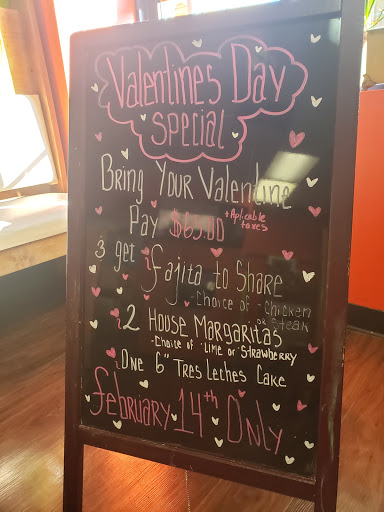 Valentines Day
Special
Bring Your Valentine
Pay $65.00 + Aplicable taxes
3 get 1 fajita to Share
- Choice of - Chicken or Steak
2 House Margaritas
- Choice of Lime or Strawberry
One 6" Tres Leches Cake
february 14th Only